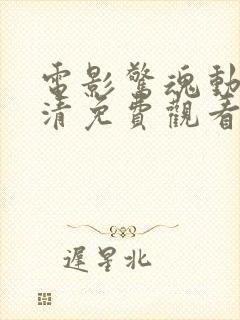 電影驚魂動
清免費觀看
遲星北